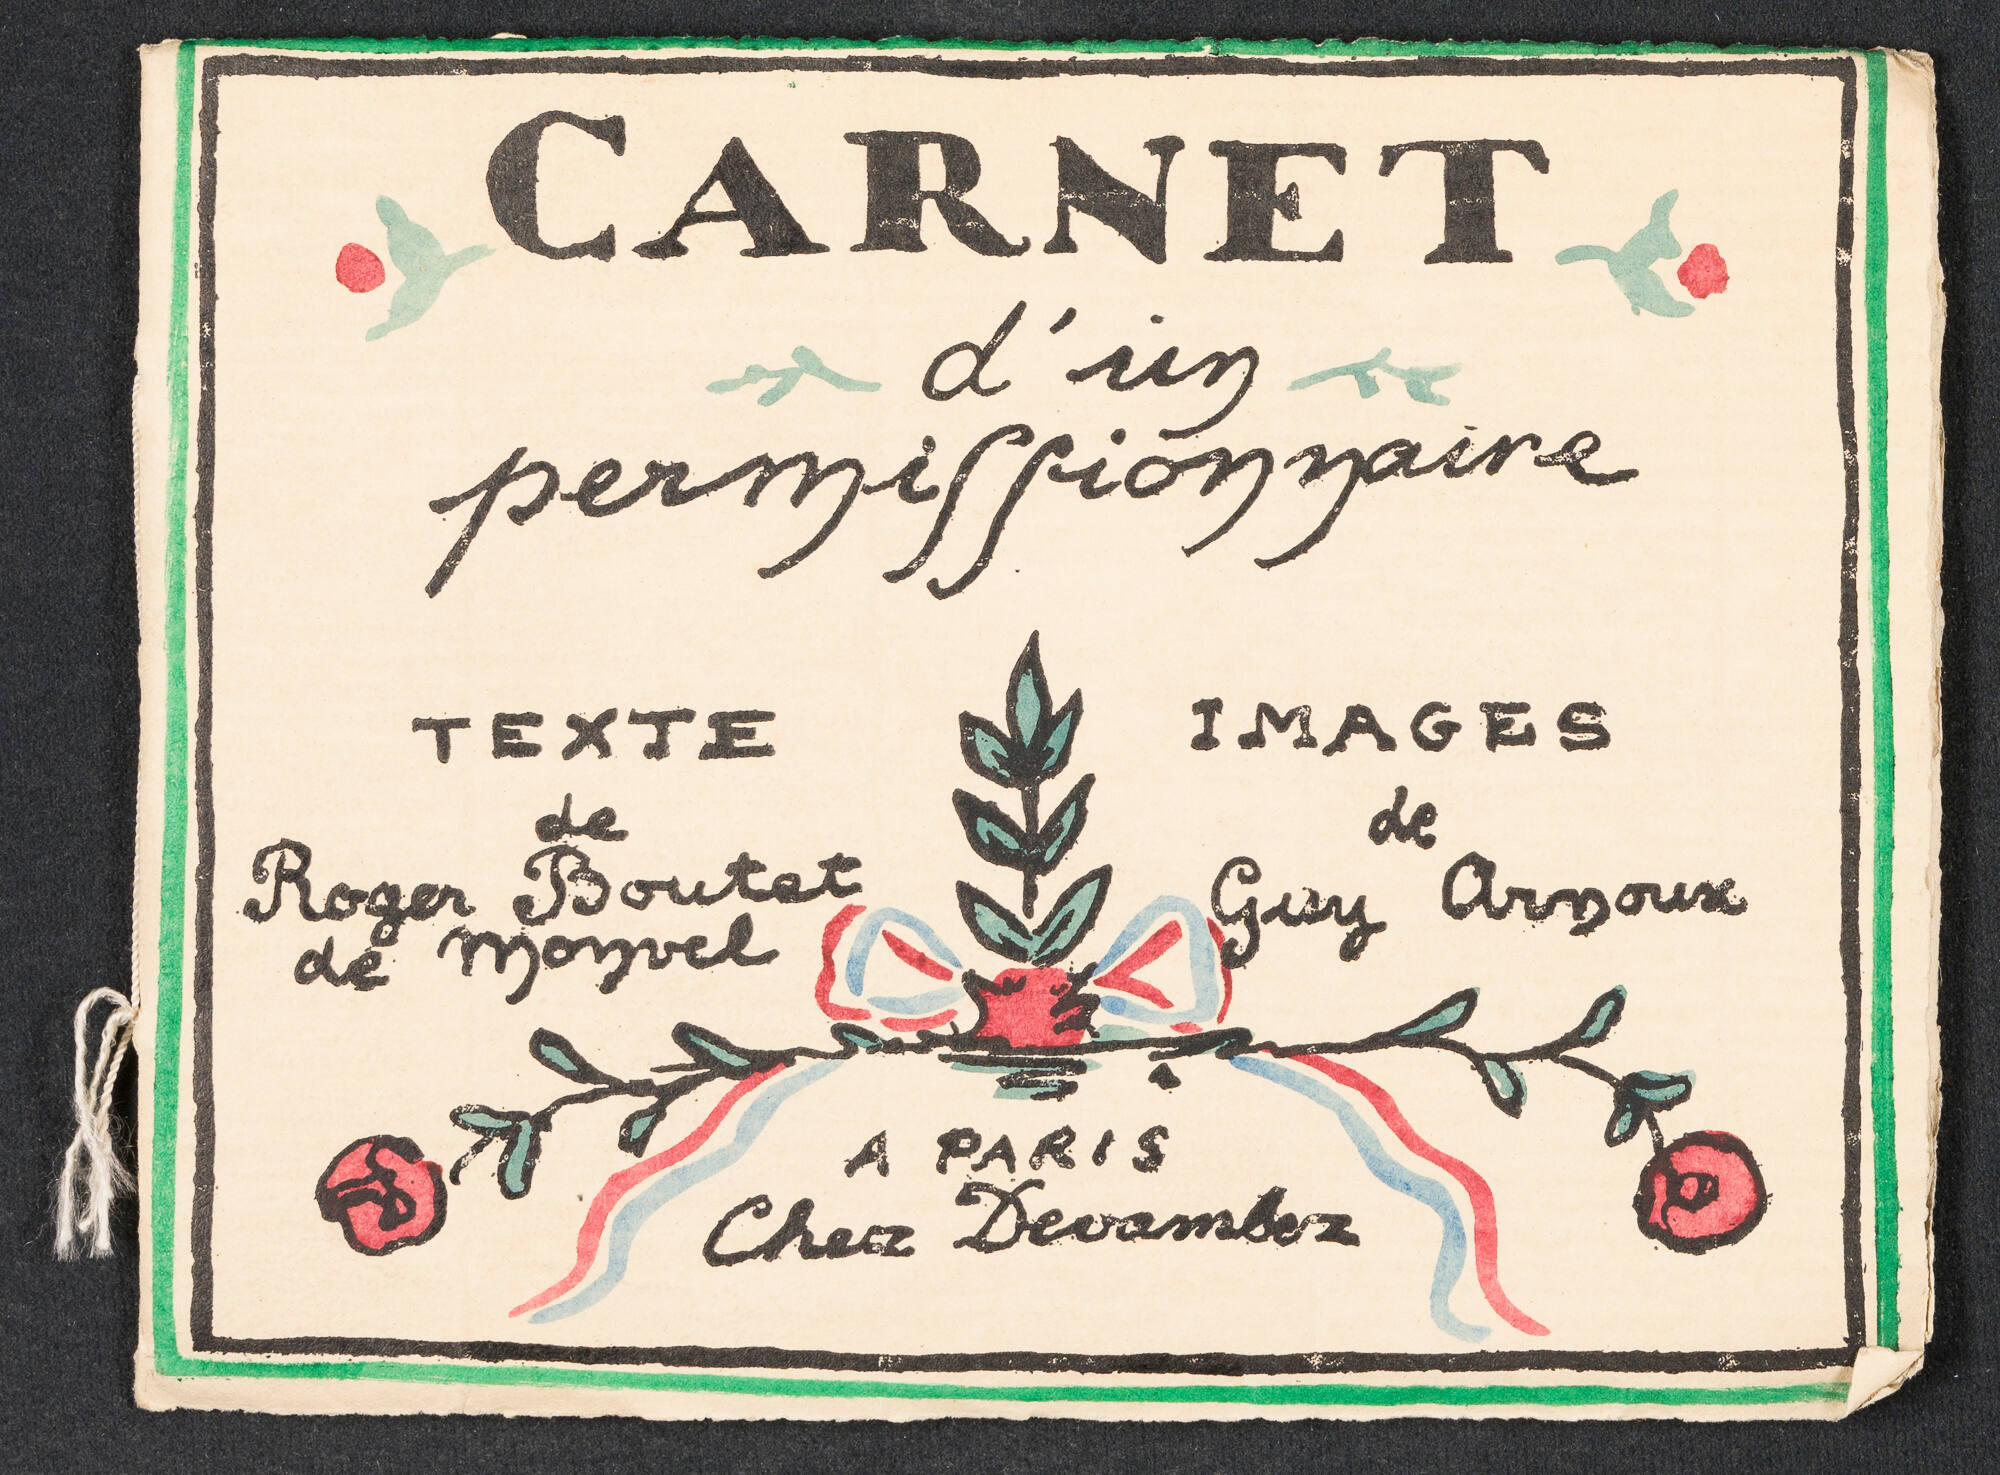 CARNET
d'un
permissionnaire
TEXTE
de
Roger Boutet
de Monvel
IMAGES
de
Guy Arnoux
A PARIS
Chez Devambez